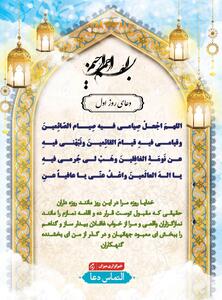 بسم الله الرحمن الرحیم
دعای روز اول
اللهم اجعل صیامی فیه صیام الصائمین
وقیامی فیه قیام القائمین ونبهنی فیه
عن نومة الغافلین وهب لی جرمی فیه
یا اله العالمین واعف عنی یا عافیا عن
خدایا روزه مرا در این روز مانند روزه داران
حقیقی که مقبول توست قرار ده و اقامه نمازم را مانند
نمازگزاران واقعی و مرا از خواب غافلان بیدار ساز و گناهم
را ببخش ای معبود جهانیان و در گذر از من ای بخشنده
گنهکاران
خبرگزاری میزان
التماس دعا